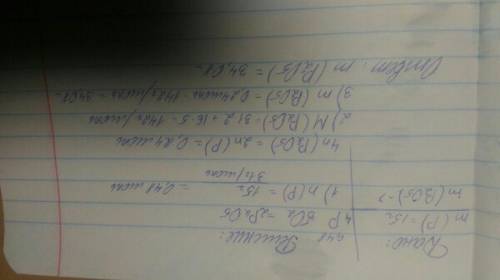 Дано:
m(P) = 15г
m(P₂O₅) - ?
Решение:
0,48
4P 5O₂ = 2P₂O₅
1) n(P) = 15г / 31г/моль = 0,48 моль
4n(P₂O₅) = 2n(P) = 0,24 моль
2) M(P₂O₅) = 31·2 + 16·5 = 142г/моль
3) m(P₂O₅) = 0,24моль · 142г/моль = 34,08г
Ответ: m(P₂O₅) = 34,08г